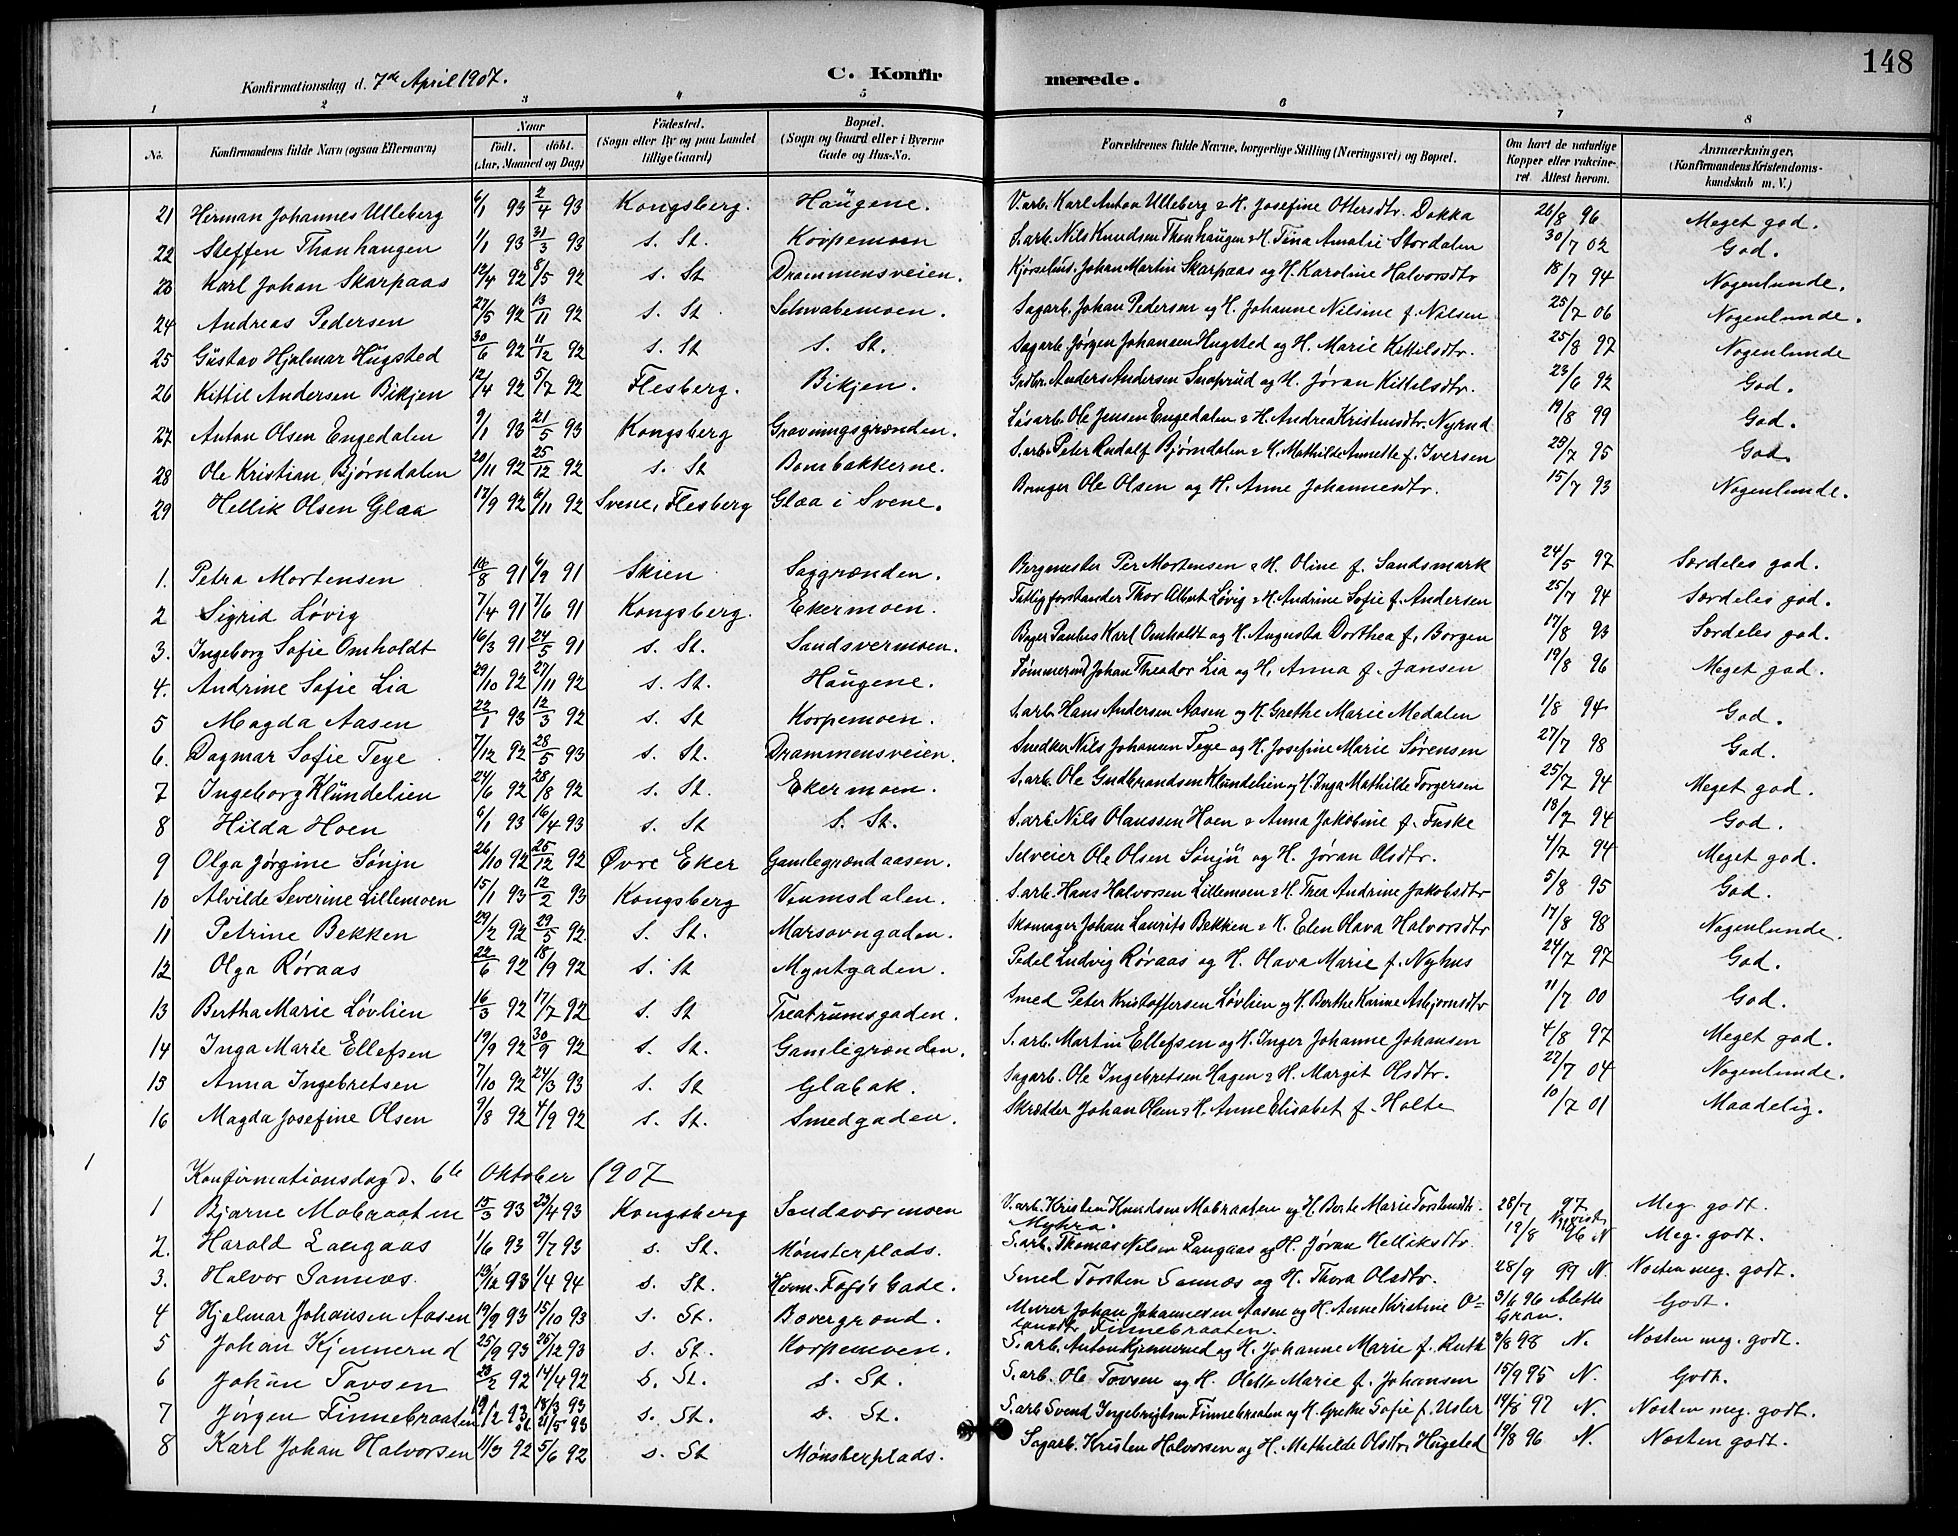 148
Konfirmationsdag d. 7de April 1907. C. Konfirmerede.
1 2 3 4 5 6 7 8
No. Konfirmandens fulde Navn (ogsaa Efternavn) Naar födt. döbt. (Aar, Maaned og Dag) Födested. (Sogn eller By og paa Landet tillige Gaard) Bopæl. (Sogn og Gaard eller i Byerne Gade og Hus-No. Forældrenes fulde Navne, borgerlige Stilling (Næringsvei) og Bopæl. Om havt de naturlige Kopper eller vakcineret. Attest herom. Anmærkninger. (Konfirmandens Kristendomskundskab m. V.)
21 Herman Johannes Ulleberg 6/1 93 2/4 93 Kongsberg. Haugene. V.arb. Karl Anton Ulleberg & H. Josefine Ottersdtr. Dokka 26/8 96 Meget god.
22 Steffen Thonhaugen 1/1 93 31/3 93 s. St. Korpemoen S.arb. Nils Knudsen Thonhaugen & H. Tina Amalie Stordalen 30/7 02 God.
23 Karl Johan Skarpaas 12/4 92 8/5 92 s. St Drammensveien. Kjørselsd. Johan Martin Skarpaas og H. Karoline Halvorsdtr 18/7 94 Nogenlunde.
24 Andreas Pedersen 27/5 92 13/11 92 s. St. Schwabemoen. Sagarb. Johan Pedersen og H. Johanne Nilsine f. Nilsen 25/7 06 Nogenlunde.
25 Gustav Hjalmar Hugsted 30/6 92 11/12 92 s. St s. St. Sagarb. Jørgen Johansen Hugsted og H. Marie Kittilsdtr. 25/8 97 Nogenlunde
26 Kittil Andersen Bikjen 12/4 92 5/7 92 Flesberg. Bikjen. Gdbr. Anders Andersen Snaprud og H. Jøran Kittilsdtr. 23/6 92 God.
27 Anton Olsen Engedalen 9/1 93 21/5 93 Kongsberg Gravningsgrænden. Løsarb. Ole Jensen Engedalen & H. Andrea Kristensdtr. Nyrud 19/8 99 God.
28 Ole Kristian Bjørndalen 20/11 92 25/12 92 s. St Bombakkerne. S.arb. Peter Rudolf Bjørndalen & H. Mathilde Annette f. Iversen 25/7 95 God.
29 Hellik Olsen Glaa 17/9 92 6/11 92 Svene, Flesberg Glaa i Svene. Bruger Ole Olsen og H. Anne Johannesdtr. 15/7 93 Nogenlunde.
1. Petra Mortensen 14/8 91 6/9 91 Skien Saggrænden. Bergmester Per Mortensen & H. Oline f. Sandsmark 24/5 97 Særdeles god.
2 Sigrid Løvig 7/4 91 7/6 91 Kongsberg. Ekermoen. Fattigforstander Thor Albert Løvig & H. Andrine Sofie f. Andersen 25/7 94 Særdeles god.
3. Ingeborg Sofie Omholdt 16/3 91 24/5 91 s. St. Sandsvermoen. Bager Paulus Karl Omholdt og H. Augusta Dorthea f. Borgen 17/8 93 Særdeles god.
4. Andrine Sofie Lia 29/10 92 27/11 92 s. St. Haugene. Tømmermd Johan Theodor Lia og H. Anna f. Jansen 19/8 96 Meget god.
5 Magda Aasen 22/1 93 12/3 92 s. St Korpemoen. S.arb. Hans Andersen Aasen og H. Grethe Marie Medalen 1/8 94 God.
6. Dagmar Sofie Teye 7/12 92 28/5 93 s. St. Drammensveien. Snedker Nils Johansen Teye og H. Josefine Marie Sørensen 27/7 98 God.
7 Ingeborg Klundelien 24/6 92 28/8 92 s. St. Ekermoen. S.arb. Ole Gudbrandsen Klundelien og H. Inga Mathilde Torgersen 25/7 94 Meget god.
8 Hilda Hoen 6/1 93 16/4 93 s. St S. St. S.arb. Nils Olaussen Hoen & Anna Jakobine f. Fuske 18/7 94 God.
9 Olga Jørgine Sønju 26/10 92 25/12 92 Øvre Eker Gamlegrændaasen. Selveier Ole Olsen Sønju og H. Jøran Olsdtr. 4/7 94 Meget god.
10 Alvilde Severine Lillemoen 15/1 93 12/2 93 Kongsberg Veumsdalen. S.arb. Hans Halvorsen Lillemoen & H. Thea Andrine Jakobsdtr 5/8 95 God.
11 Petrine Bekken 29/2 92 29/5 92 S. St. Marsovngaden. Skomager Johan Laurits Bekken & K. Elen Olava Halvorsdtr 17/8 98 Nogenlunde.
12 Olga Røraas 22/6 92 18/9 92 S. St Myntgaden. Pedel Ludvig Røraas og H. Olava Marie f. Nyhus 24/7 97 God.
13 Bertha Marie Løvlien 16/3 92 17/7 92 s. St Treatrumsgaden. Smed Peter Kristoffersen Løvlien og H. Berthe Karine Asbjørnsdtr 11/7 00 God.
14 Inga Marie Ellefsen 19/9 92 30/9 92 s. St. Gamlegrænden. S.arb. Martin Ellefsen og H. Inger Johanne Johansen 4/8 97 Meget god.
15 Anna Ingebretsen 7/10 92 24/3 93 s. St Glabak. Sagarb. Ole Ingebretsen Hagen & H. Margit Olsdtr. 22/7 04 Nogenlunde.
16 Magda Josefine Olsen 9/8 92 4/9 92 s. St. Smedgaden. Skrædder Johan Olsen & H. Anne Elisabet f. Holte 10/7 01 Maadelig.
1 Konfirmationsdag d. 6te Oktober 1907
1 Bjarne Mobraaten 15/3 93 23/4 93 Kongsberg Sandsværmoen V.arb. Kristen Knudsen Mobraaten og H. Berte Marie Torstensdtr. Myhra. 28/7 97 Meg. godt.
2. Harald Langaas 1/6 93 9/7 93 s. St. Mønsterplads. S.arb. Thomas Nilsen Langaas og H. Jøran Helliksdtr. 12/8 96 N Meg. godt.
3. Halvor Sannæs. 13/12 93 1/4 94 s. St. Herm. Foss's Gade. Smed Torsten Sannæs og H. Thora Olsdtr. 28/9 99 N. Næsten meg. godt.
4 Hjalmar Johansen Aasen 19/9 93 15/10 93 s. St. Bævergrænd. Murer Johan Johannesen Aasen og H. Anne Kirstine Olausdtr Finnebraaten. 3/6 96 Alette Gran. Godt.
5 Johan Kjennerud 25/9 93 26/12 93 s. St. Korpemoen. S.arb. Anton Kjennerud og H. Johanne Marie f. Ruth 3/8 98 N. Næsten meg. godt.
6 Johan Tovsen 28/2 92 14/4 92 s. St. s. St. S.arb. Ole Tovsen og H. Olette Marie f. Johansen 15/9 95 N. Godt.
7 Jørgen Finnebraaten 19/2 93 18/3 93 St 21/5 93 s. St. s. St. S.arb Svend Ingebrigtsen Finnebraaten og H. Grethe Sofie f. Usler 14/8 97 N. Næsten meg. godt.
8 Karl Johan Halvorsen 11/3 92 5/6 92 s. St Mønsterplads. Sagarb. Kristen Halvorsen og H. Mathilde Olsdtr. Hugsted 19/8 96 N. Næsten godt.